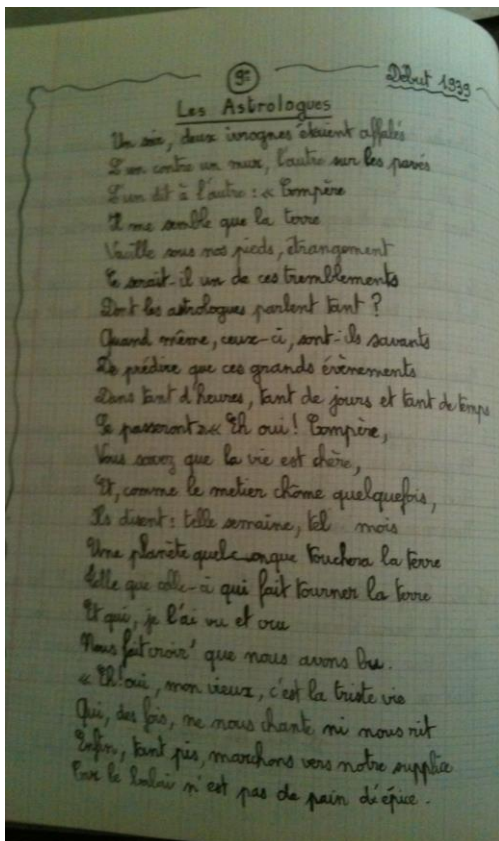 9e
Début 1939
Les Astrologues
Un soir, deux ivrognes étaient affalés
L'un contre un mur, l'autre sur les pavés
L'un dit à l'autre : « Compère
Il me semble que la terre
Vacille sous nos pieds, étrangement
Ce serait-il un de ces tremblements
Dont les astrologues parlent tant ?
Quand même, ceux-ci, sont-ils savants
De prédire que ces grands évènements
Dans tant d'heures, tant de jours et tant de temps
Se passeront » « Eh oui ! Compère,
Vous savez que la vie est chère,
Et, comme le metier chôme quelquefois,
Ils disent : telle semaine, tel mois
Une planète quelconque touchera la terre
Telle que celle-ci qui fait tourner la terre
Et qui, je l'ai vu et cru
Nous fait croir' que nous avons bu.
« Eh ! oui, mon vieux, c'est la triste vie
Qui, des fois, ne nous chante ni nous rit
Enfin, tant pis, marchons vers notre supplice
le n'est pas de pain d'épice .